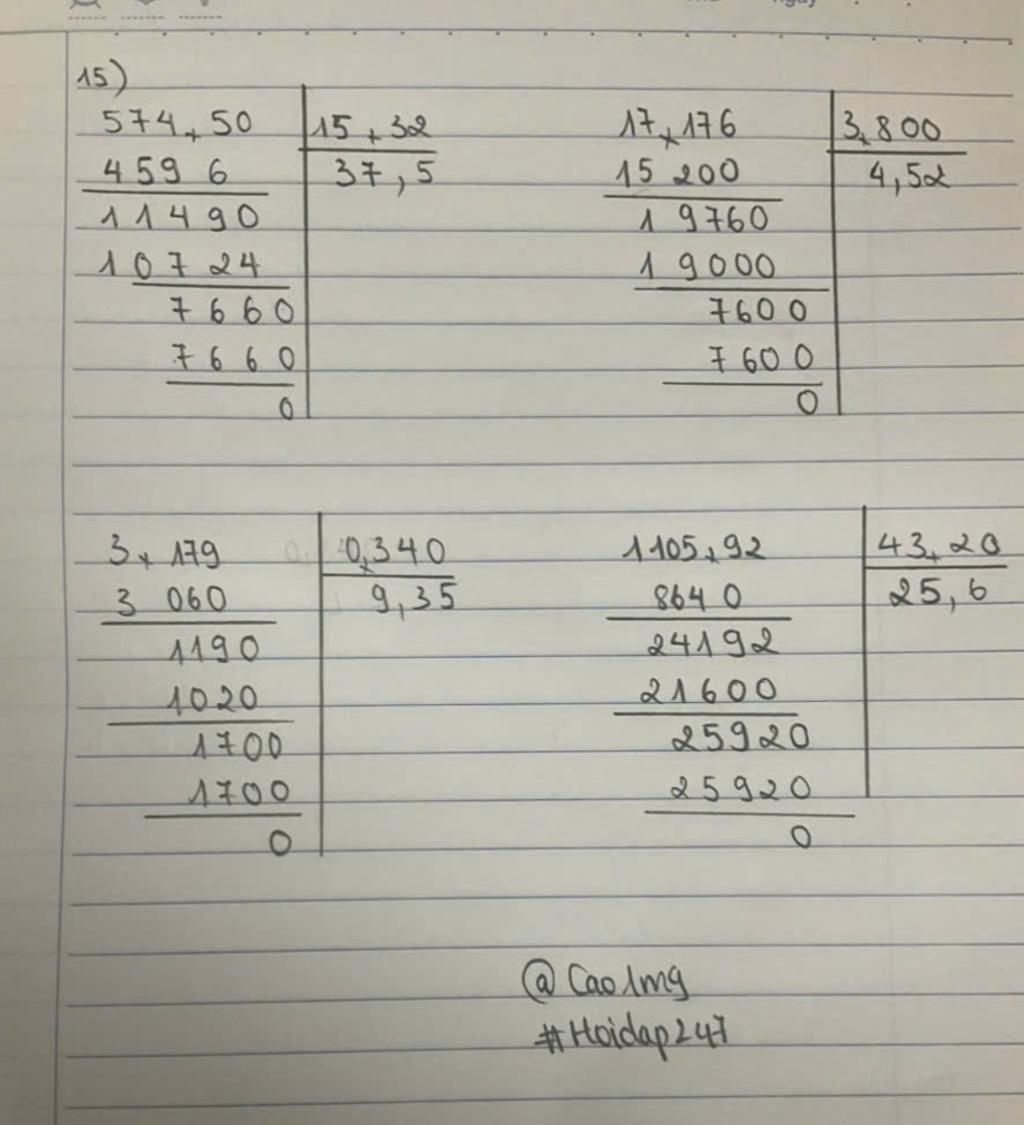 15)
574,50 15,32
459 6 37,5
11490
10724
7660
7660
0
17,176 3,800
15 200 4,52
19760
19000
7600
7600
0
3,179 0,340
3 060 9,35
1190
1020
1700
1700
0
1105,92 43,20
8640 25,6
24192
21600
25920
25920
0
@Cao1mg
#Hoidap247